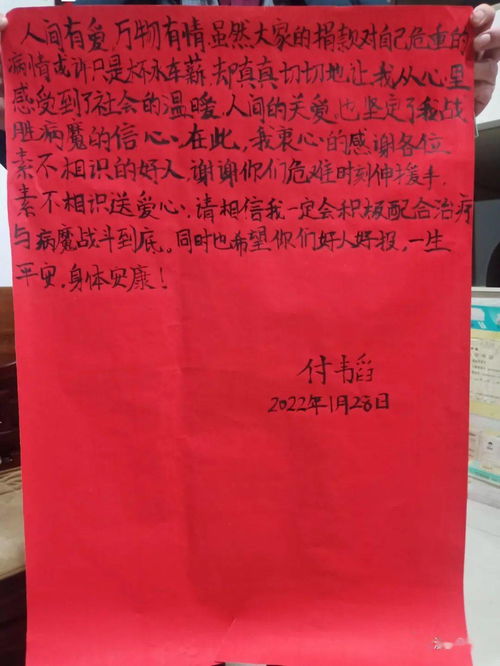 人间有爱万物有情虽然大家的捐款对自己危重的
病情或许只是杯水车薪,却真真切切地让我从心里
感受到了社会的温暖,人间的关爱,也坚定了我战
胜病魔的信心。在此,我衷心的感谢各位、
素不相识的好人,谢谢你们危难时刻伸援手,
素不相识送爱心,请相信我一定会积极配合治疗
与病魔战斗到底。同时也希望你们好人好报,一生
平安,身体安康!
付韦韬
2022年1月28日